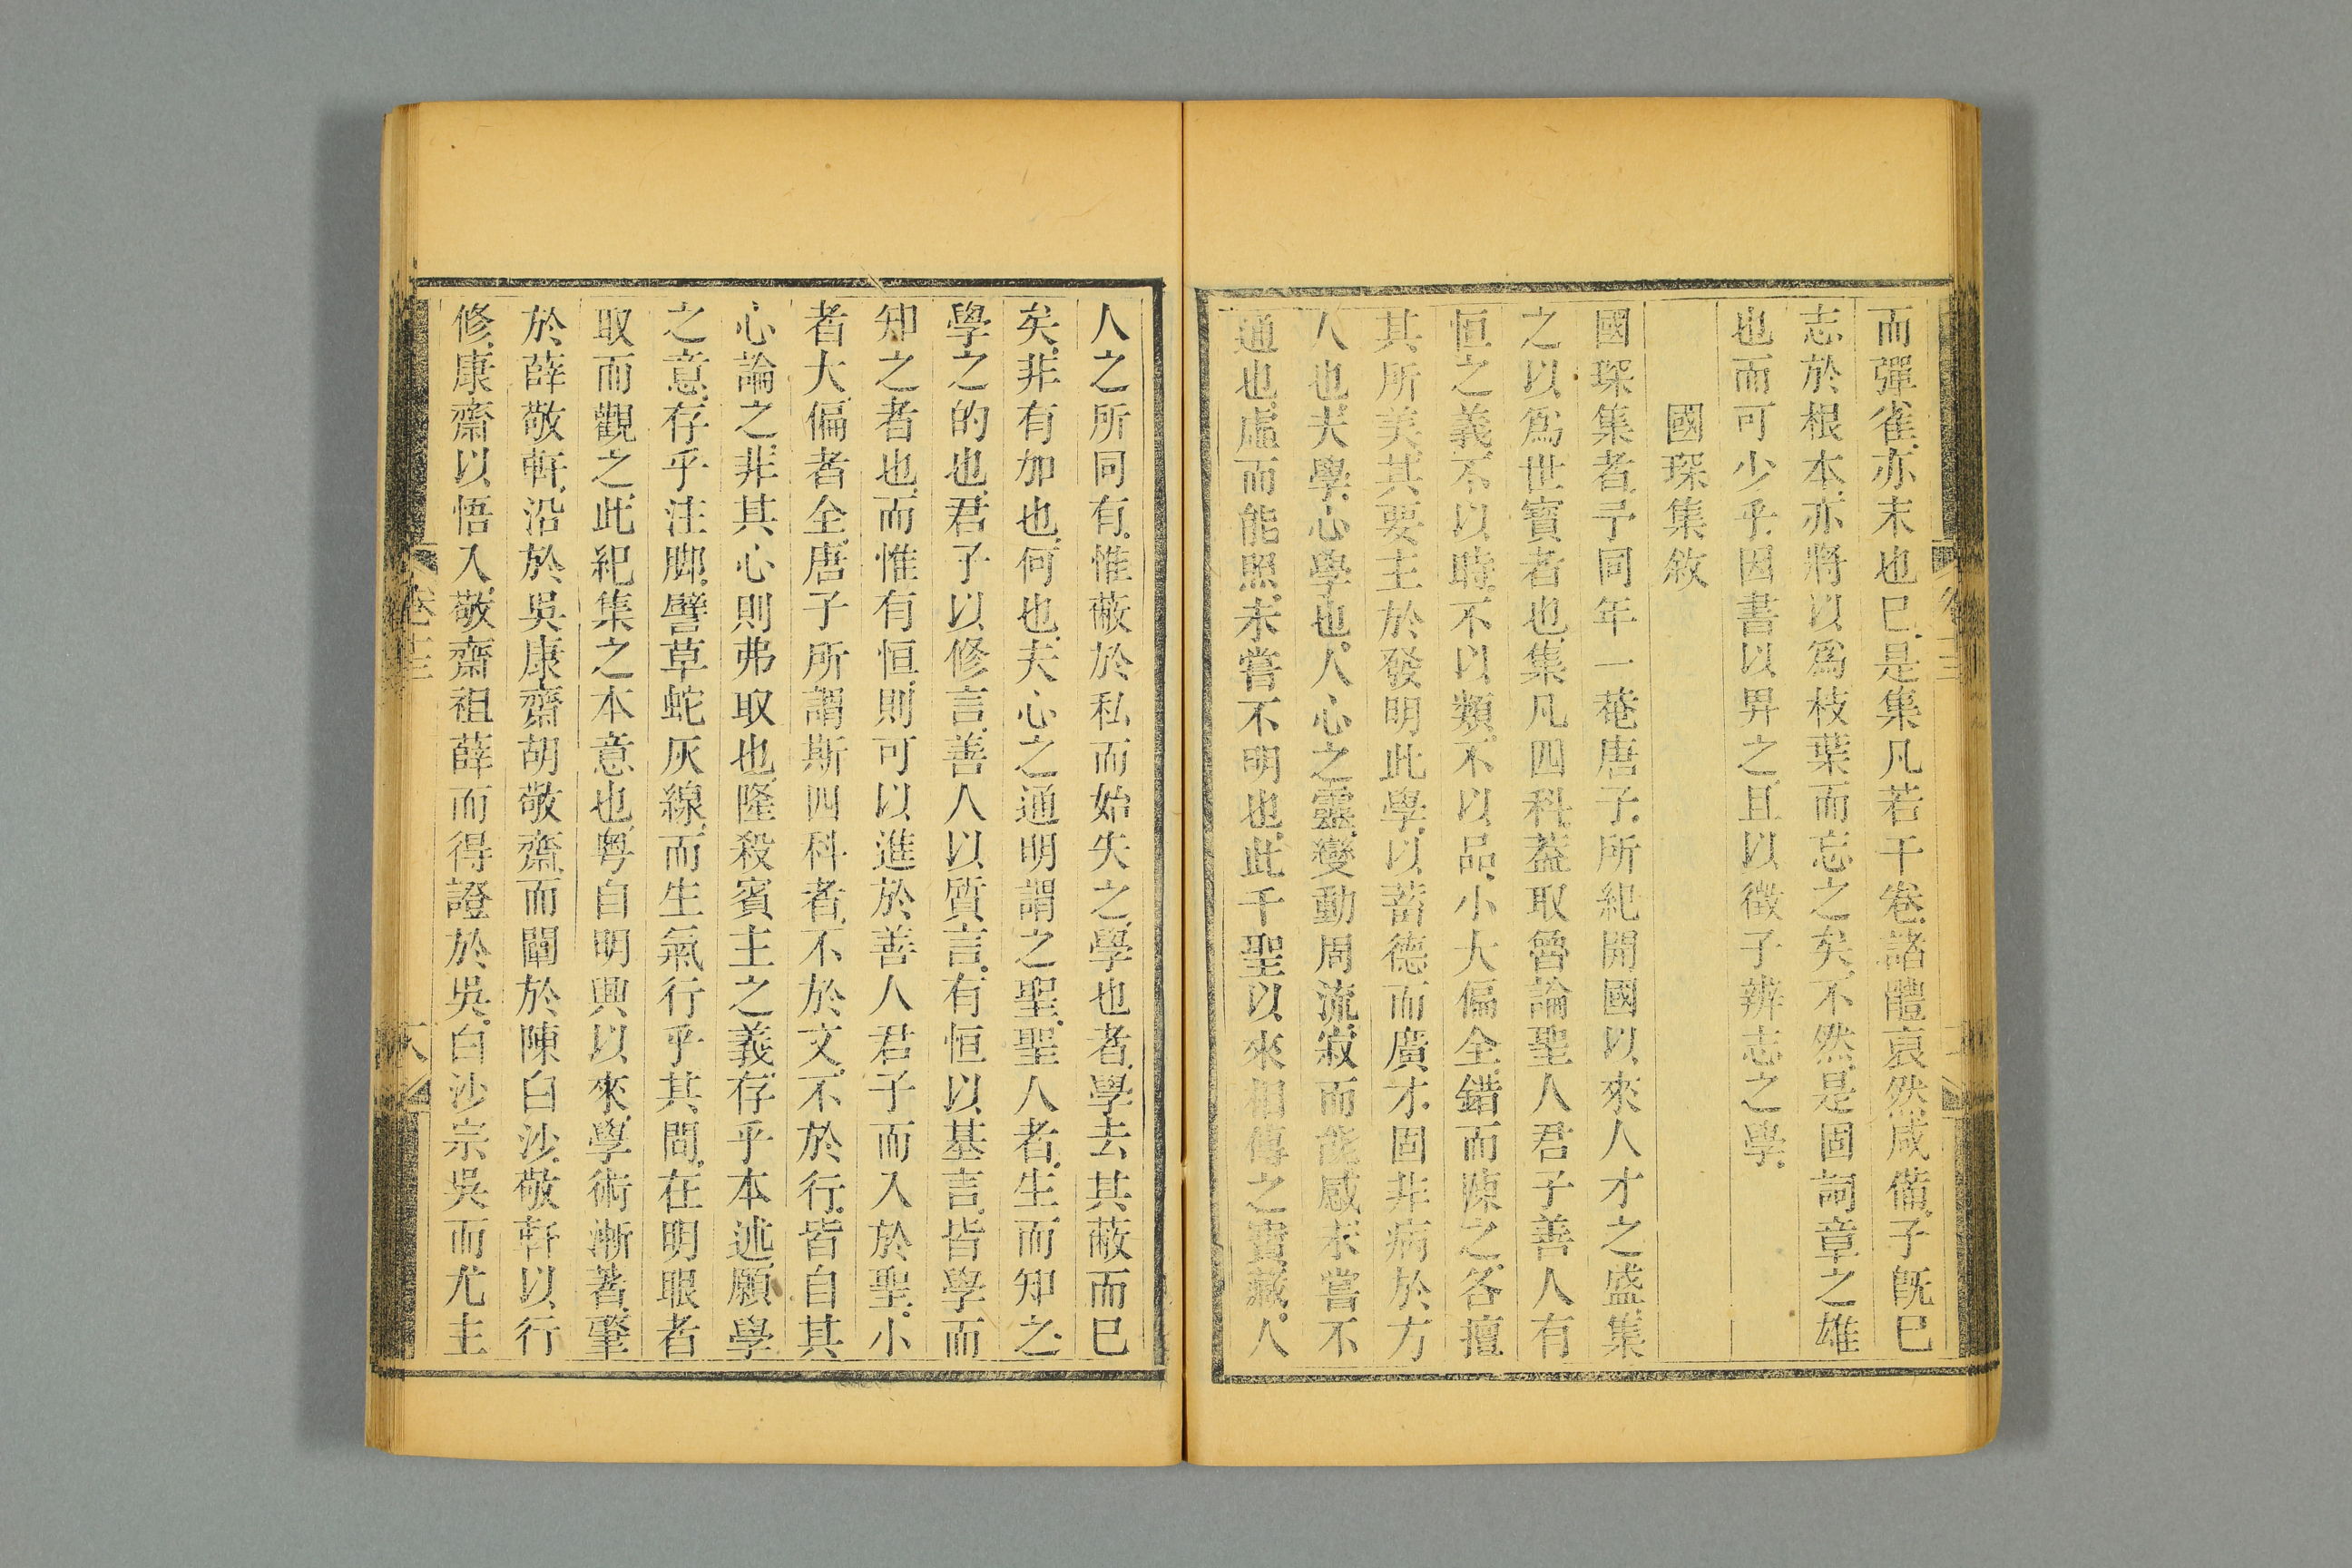 而彈雀亦末也已是集凡若干卷諸體裒然咸備子旣已
志於根本亦將以爲枝葉而忘之矣不然是固詞章之雄
也而可少乎因書以畀之且以徵子辨志之學
國琛集敘
國琛集者予同年一菴唐子所紀開國以來人才之盛集
之以爲世寳者也集凡四科葢取魯論聖人君子善人有
恒之義不以時不以類不以品小大偏全錯而陳之各擅
其所美其要主於發明此學以蓄德而廣才固非病於方
人也夫學心學也人心之靈變動周流寂而能感未嘗不
通也虛而能照未嘗不明也此千聖以來相傳之寳藏人
人之所同有惟蔽於私而始失之學也者學去其蔽而已
矣非有加也何也夫心之通明謂之聖聖人者生而知之
學之的也君子以修言善人以質言有恒以基言皆學而
知之者也而惟有恒則可以進於善人君子而入於聖小
者大偏者全唐子所謂斯四科者不於文不於行皆自其
心論之非其心則弗取也隆殺賓主之義存乎本述願學
之意存乎注脚譬草蛇灰線而生氣行乎其間在明眼者
取而觀之此紀集之本意也粤自明興以來學術漸著肇
於薛敬軒沿於吳康齋胡敬齋而闡於陳白沙敬軒以行
修康齋以悟入敬齋祖薛而得證於吳白沙宗吳而尤主